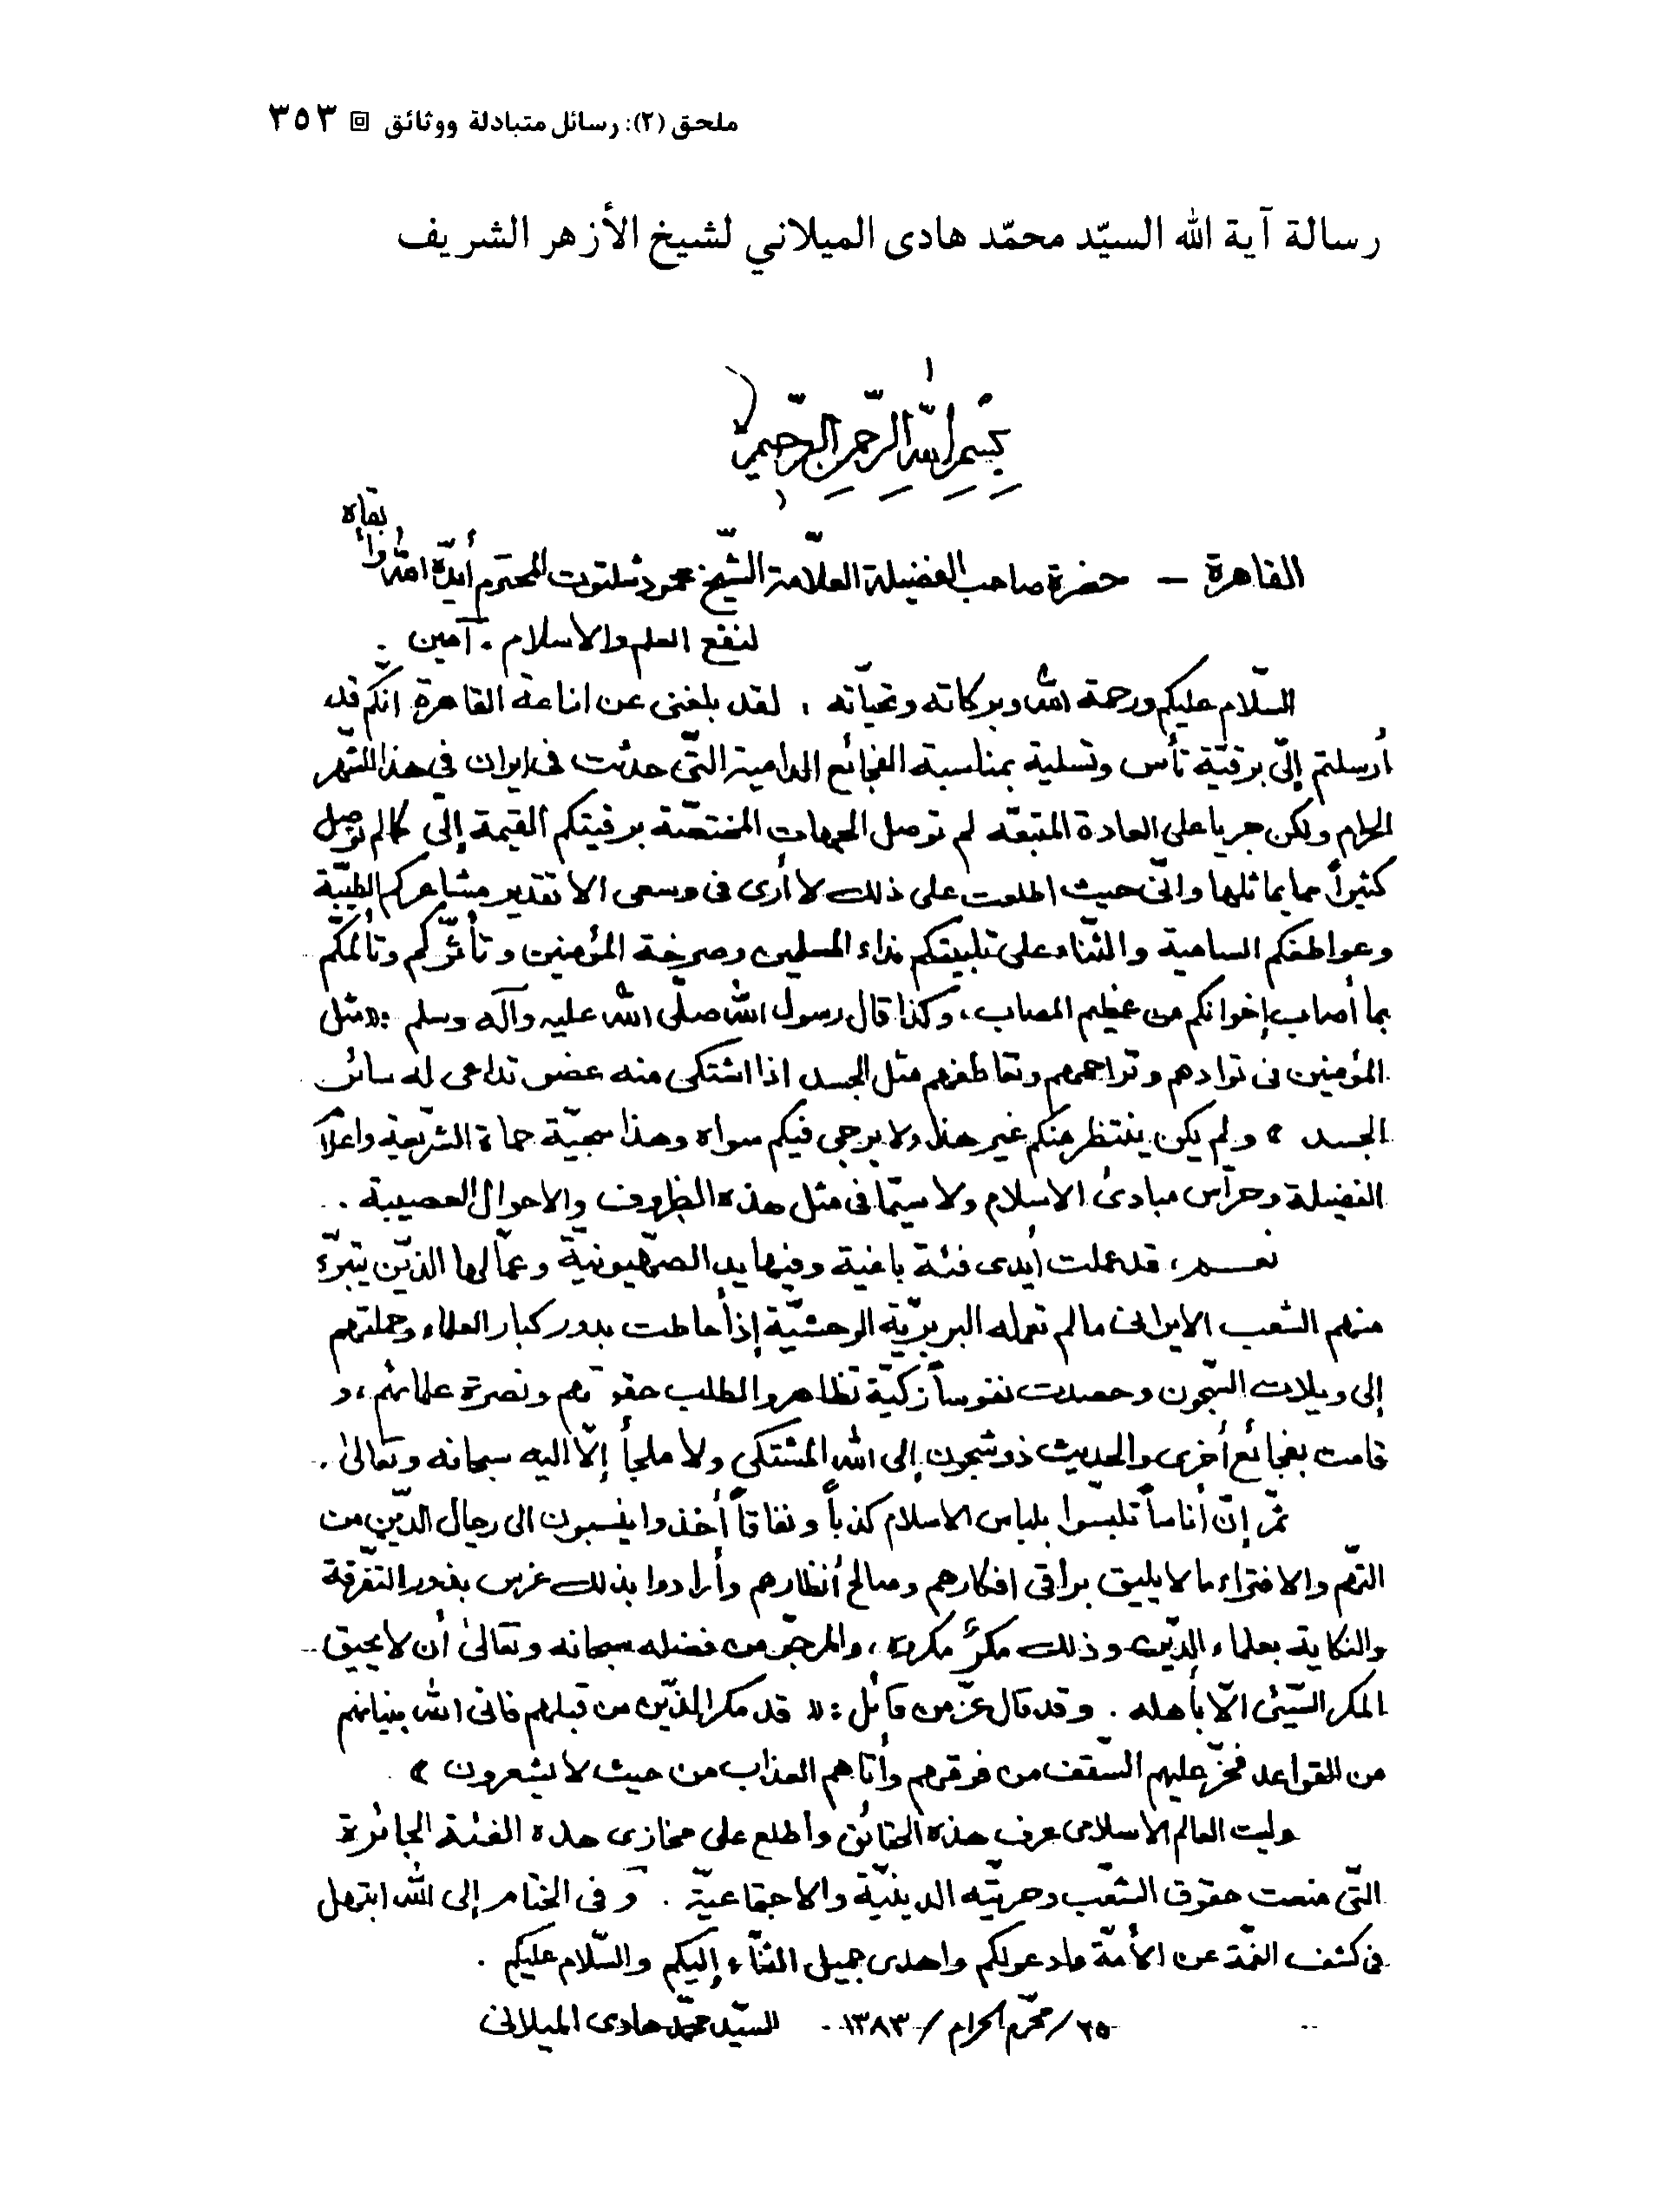 ملحق (٢): رسائل متبادلة ووثائق ▣ ٣٥٣
رسالة آية الله السيّد محمّد هادى الميلاني لشيخ الأزهر الشريف
بِسْمِ اللهِ الرَّحمنِ الرَّحيم
القاهرة - حضرة صاحب الفضيلة العلّامة الشّيخ محمود شلتوت المحترم أيّده الله وأبقاه
لنفع العلم والاسلام . آمين .
السّلام عليكم ورحمة الله وبركاته وتحياته ، لقد بلغنى عن اذاعة القاهرة انّكم قد
أرسلتم إلىّ برقيّة تأس وتسلية بمناسبة الفجائع الدامية التّى حدثت فى ايران فى هذا الشهر
الحرام ولكن جريا على العادة المتبعّه لم توصل الجهات المختصّة برقيتكم القيمة إلىّ كما لم توصل
كثيراً مما يماثلها وانّى حيث اطلعت على ذلك لا أرى فى وسعى الا تقدير مشاعركم الطيّبة
وعواطفكم السامية والثّناء على تلبيتكم نداء المسلمين وصرخة المؤمنين وتأثّركم وتألمكم
بما أصاب إخوانكم من عظيم المصاب ، وكذا قال رسول الله صلّى الله عليه وآله وسلم : « مثل
المؤمنين فى توادهم وتراحمهم وتعاطفهم مثل الجسد اذا اشتكى منه عضو تداعى له سائر
الجسد » ولم يكن ينتظر منكم غير هذا ولا يرجى فيكم سواه وهذا سجيّة حماة الشّريعة واعلام
الفضيلة وحرّاس مبادئ الاسلام ولا سيّما فى مثل هذه الظروف والاحوال العصيبة .
نعم ، قد عملت أيدى فئة باغية وفيها يد الصّهيونيّة وعمّالها الذّين يتبرّء
منهم الشّعب الايرانى ما لم تعمله البربريّة الوحشيّة إذ أحاطت بدور كبار العلماء وحملتهم
إلى ويلات السّجون وحصدت نفوساً زكيّة تظاهروا لطلب حقوقهم ونصرة علمائهم ، و
قامت بفجائع أخرى والحديث ذو شجون إلى الله المشتكى ولا ملجأ إلّا اليه سبحانه وتعالىٰ .
ثمّ إنّ أناساً تلبّسوا بلباس الاسلام كذباً ونفاقاً أخذوا ينسبون الى رجال الدّين من
التّهم والافتراء ما لا يليق براقى افكارهم وصالح أنظارهم وأرادوا بذلك غرس بذور التّفرقة
والنكاية بعلماء الدّين وذلك مكرٌ مكروه ، والمرجوّ من فضله سبحانه وتعالىٰ أن لا يحيق
المكر السّيّئ الّا بأهله . وقد قال عزّ من قائل : « قد مكر الذّين من قبلهم فاتى الله بنيانهم
من القواعد فخرّ عليهم السّقف من فوقهم وأتاهم العذاب من حيث لا يشعرون »
وليت العالم الاسلامى عرف هذه الحقائق واطلع على مخازى هذه الفئة الجائرة
التّى منعت حقوق الشّعب وحريّته الدينيّة والاجتماعيّة . وفى الختام إلى الله ابتهل
فى كشف الغمّة عن الأمّة وادعو لكم واهدى جميل الثنّاء إليكم والسّلام عليكم .
٢٥/ محرّم الحرام / ١٣٨٣ - السيّد محمّد هادى الميلانى